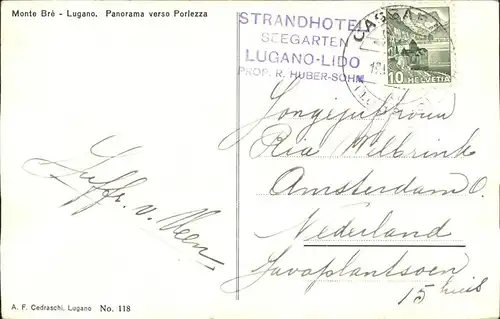 Monte Brè - Lugano. Panorama verso Porlezza
STRANDHOTEL
SEEGARTEN
LUGANO-LIDO
PROP. R. HUBER-SOHM
CASSAR
10 HELVETIA
Jongejufvrouw
Ria Melbrink
Amsterdam O.
Nederland
Javaplantsoen
15 huis
Juffr. v. Veen
A. F. Cedraschi, Lugano No. 118